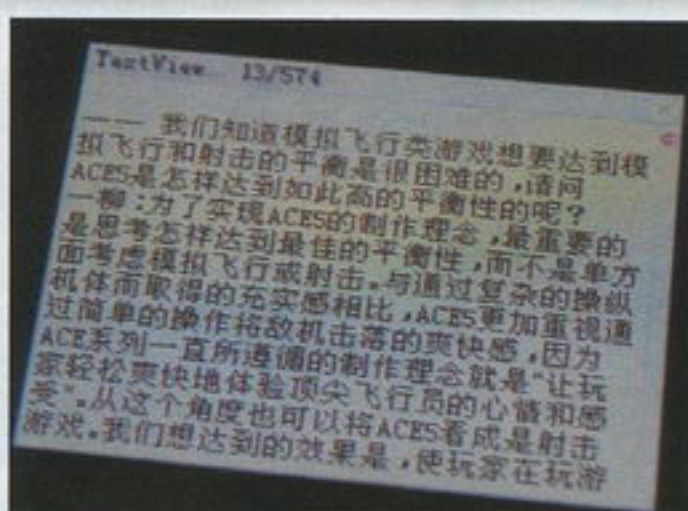 TextView 13/574
—— 我们知道模拟飞行类游戏想要达到模
拟飞行和射击的平衡是很困难的，请问
ACE5是怎样达到如此高的平衡性的呢？
一柳：为了实现ACE5的制作理念，最重要的
是思考怎样达到最佳的平衡性，而不是单方
面考虑模拟飞行或射击。与通过复杂的操纵
机体而取得的充实感相比，ACE5更加重视通
过简单的操作将敌机击落的爽快感，因为
ACE系列一直所遵循的制作理念就是“让玩
家轻松爽快地体验顶尖飞行员的心情和感
受”。从这个角度也可以将ACE5看成是射击
游戏。我们想达到的效果是，使玩家在玩游